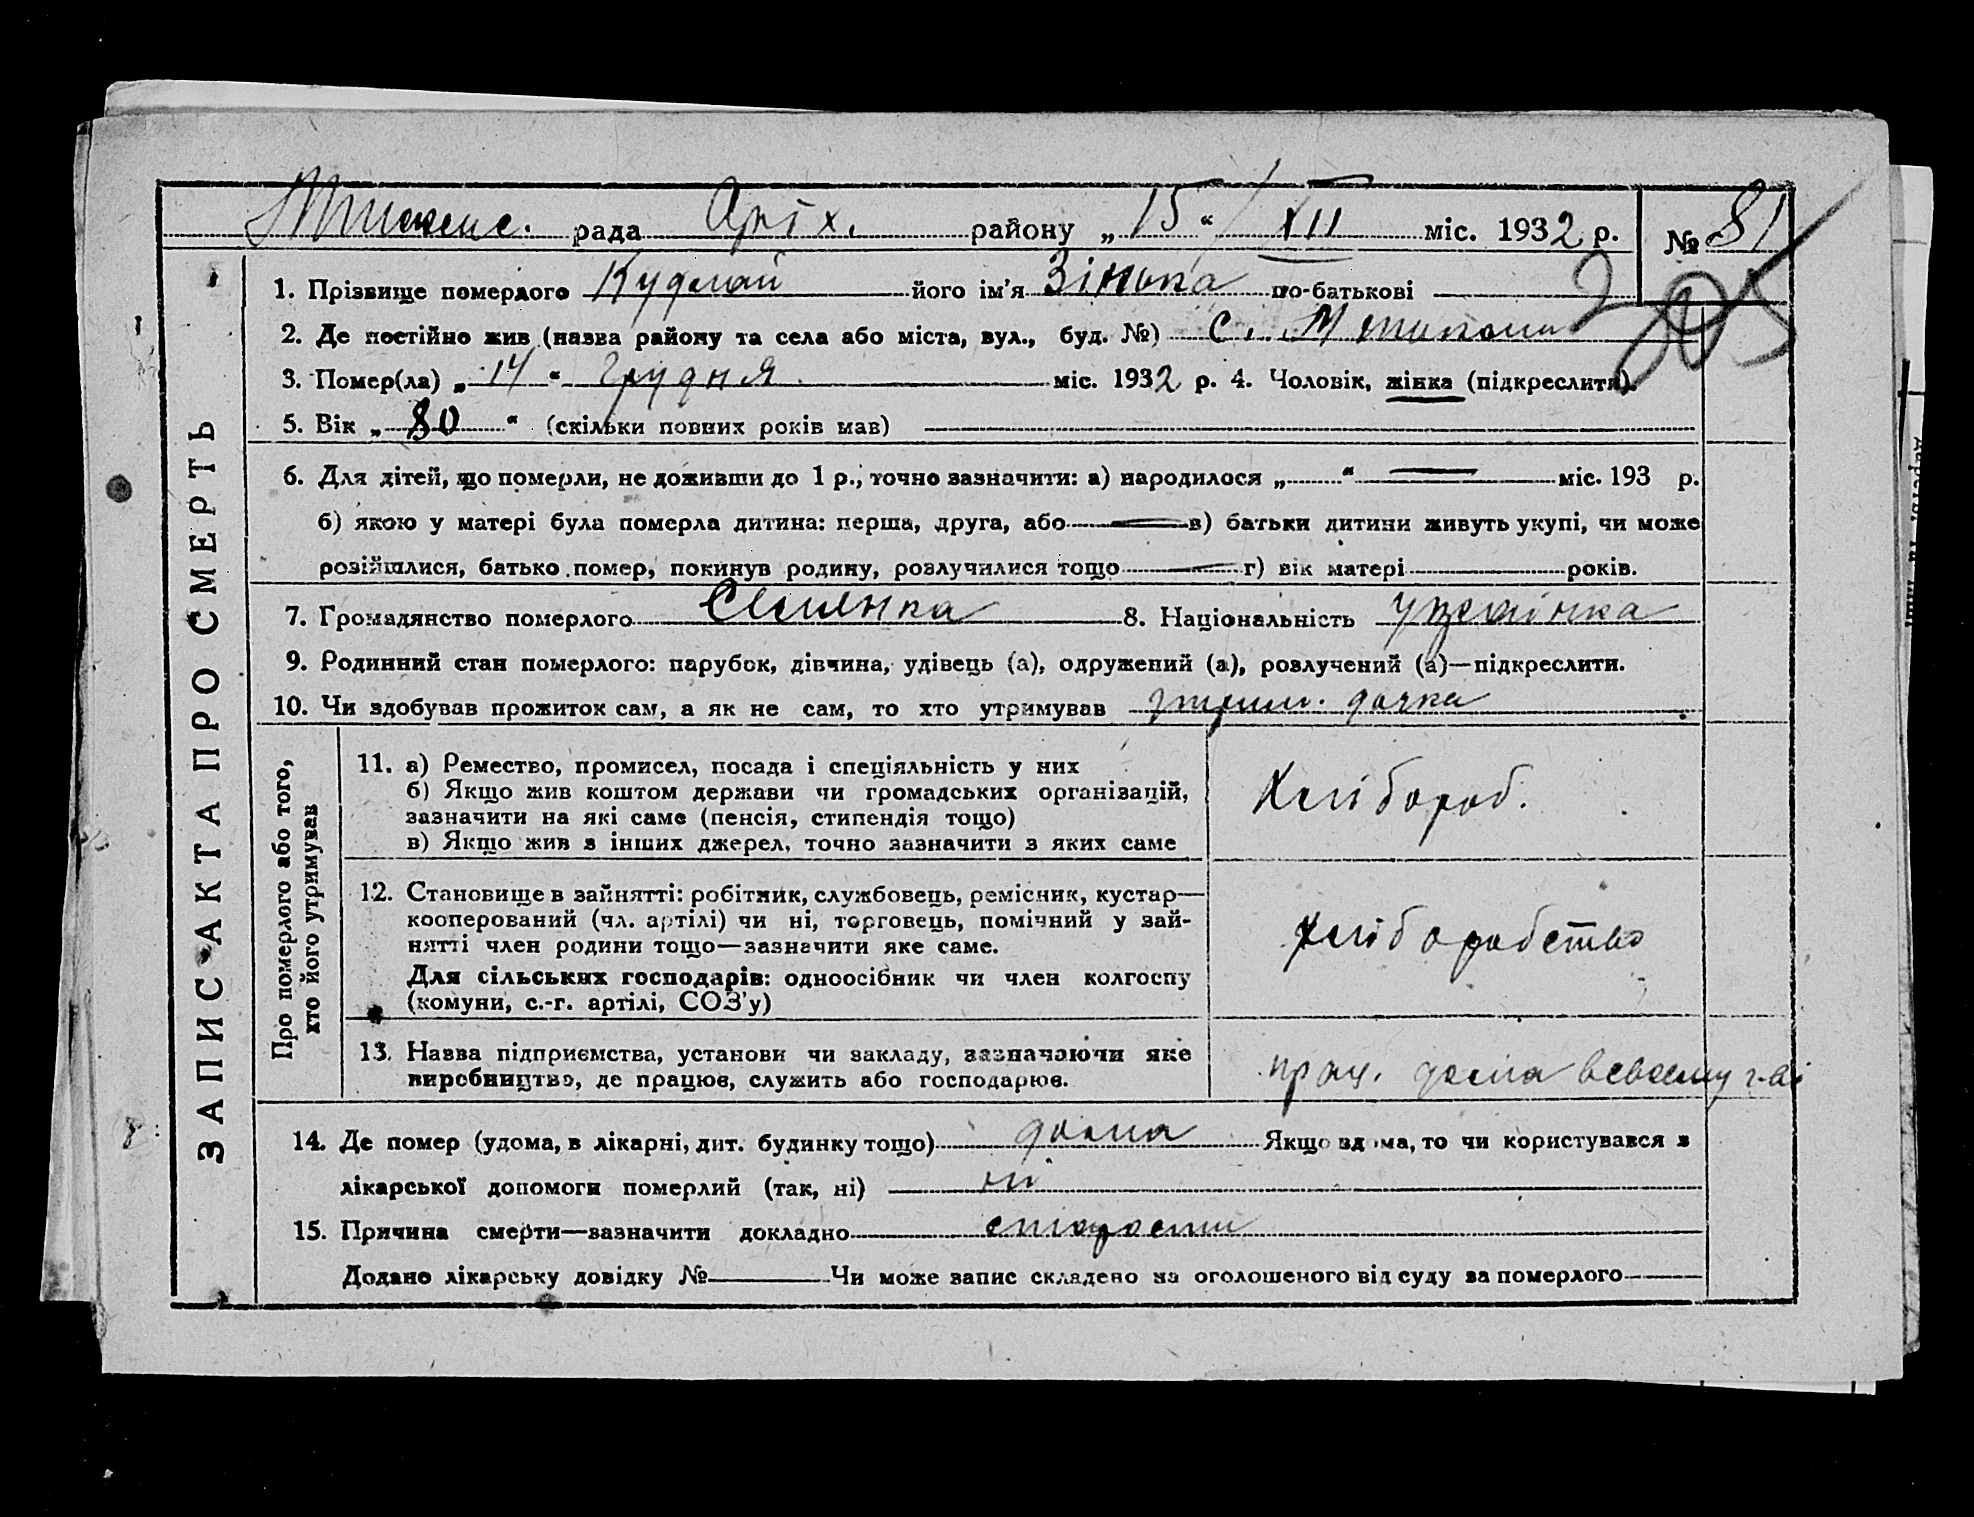 рада Оріх. району „15“ XII міс. 1932 р. № 81
1. Прізвище померлого Кудлай його ім'я Зінька по-батькові
2. Де постійно жив (назва району та села або міста, вул., буд. №) с.
3. Помер(ла) „14“ грудня міс. 1932 р. 4. Чоловік, жінка (підкреслити).
5. Вік „80“ (скільки повних років мав)
6. Для дітей, що померли, не доживши до 1 р., точно зазначити: а) народилося „ “ міс. 193 р.
б) якою у матері була померла дитина: перша, друга, або в) батьки дитини живуть укупі, чи може
розійшлися, батько помер, покинув родину, розлучилися тощо г) вік матері років.
7. Громадянство померлого Селянка 8. Національність українка
9. Родинний стан померлого: парубок, дівчина, удівець (а), одружений (а), розлучений (а)—підкреслити.
10. Чи здобував прожиток сам, а як не сам, то хто утримував утрим. дочка
ЗАПИС АКТА ПРО СМЕРТЬ
Про померлого або того,
хто його утримував
11. а) Ремество, промисел, посада і спеціяльність у них
б) Якщо жив коштом держави чи громадських організацій,
зазначити на які саме (пенсія, стипендія тощо)
в) Якщо жив з інших джерел, точно зазначити з яких саме
Хлібороб.
12. Становище в зайнятті: робітник, службовець, ремісник, кустар—
кооперований (чл. артілі) чи ні, торговець, помічний у зай-
нятті член родини тощо—зазначити яке саме.
Для сільських господарів: одноосібник чи член колгоспу
(комуни, с.-г. артілі, СОЗ'у)
хліборобство
13. Назва підприємства, установи чи закладу, зазначаючи яке
виробництво, де працює, служить або господарює.
прац. дома всвоєму г-ві
14. Де помер (удома, в лікарні, дит. будинку тощо) дома Якщо вдома, то чи користувався з
лікарської допомоги померлий (так, ні) ні
15. Причина смерти—зазначити докладно старости
Додано лікарську довідку № Чи може запис складено на оголошеного від суду за померлого